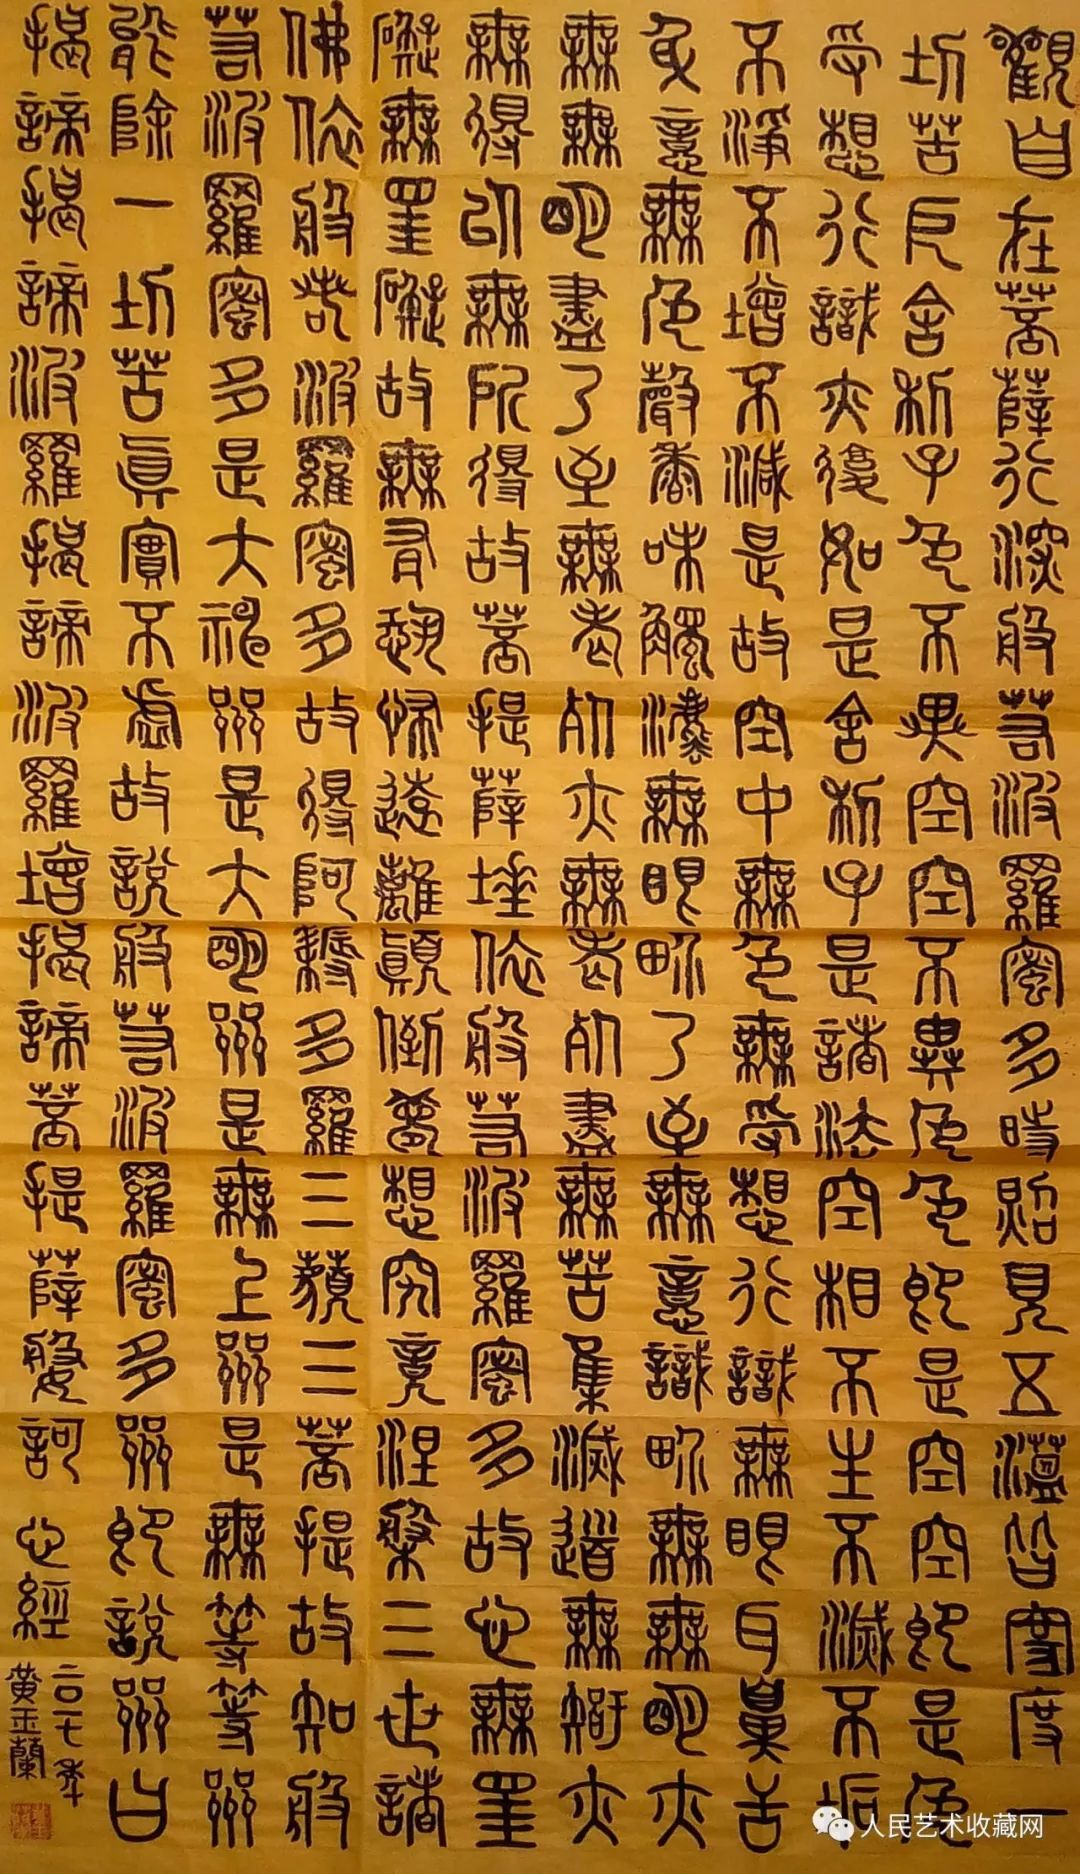 觀自在菩薩行深般若波羅蜜多時照見五蘊皆空度一
切苦厄舍利子色不異空空不異色色即是空空即是色
受想行識亦復如是舍利子是諸法空相不生不滅不垢
不淨不增不減是故空中無色無受想行識無眼耳鼻舌
身意無色聲香味觸法無眼界乃至無意識界無無明亦
無無明盡乃至無老死亦無老死盡無苦集滅道無智亦
無得以無所得故菩提薩埵依般若波羅蜜多故心無罣
礙無罣礙故無有恐怖遠離顛倒夢想究竟涅槃三世諸
佛依般若波羅蜜多故得阿耨多羅三藐三菩提故知般
若波羅蜜多是大神咒是大明咒是無上咒是無等等咒
能除一切苦真實不虛故說般若波羅蜜多咒即說咒曰
揭諦揭諦波羅揭諦波羅增揭諦菩提薩婆訶 心經
二〇一七年
黃玉蘭
人民艺术收藏网